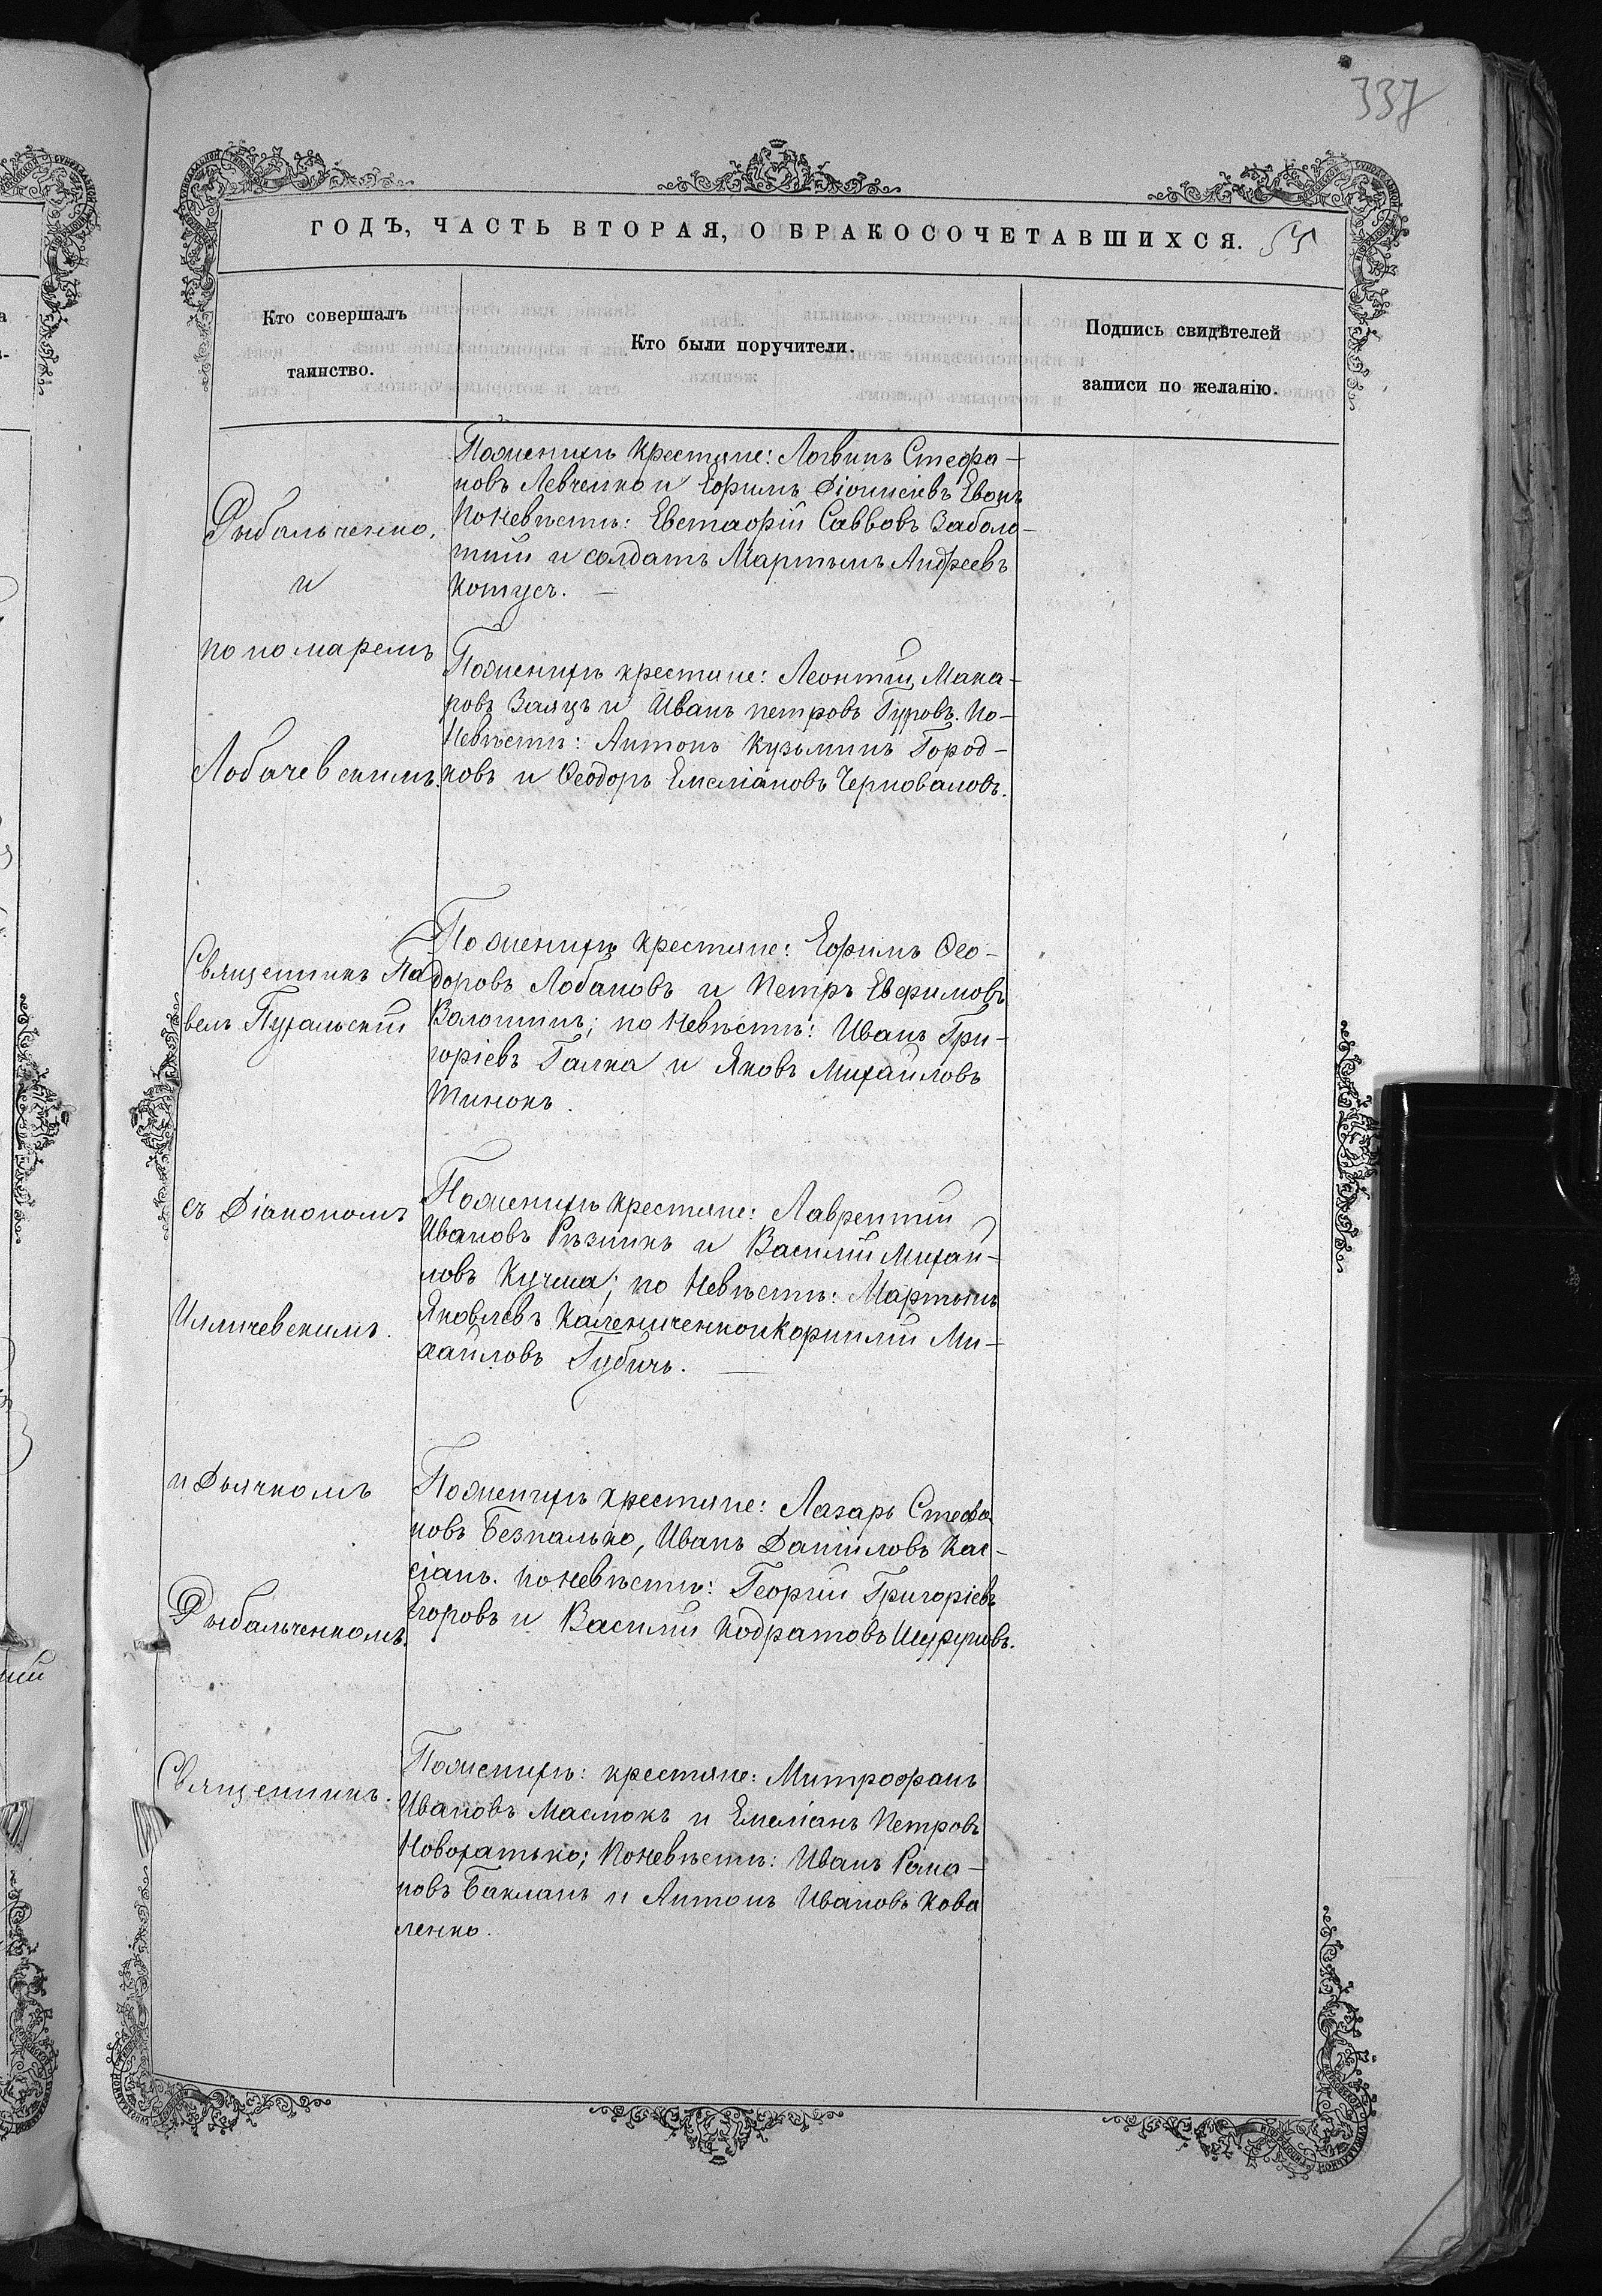 337
ГОДЪ, ЧАСТЬ ВТОРАЯ, О БРАКОСОЧЕТАВШИХСЯ.
Кто совершалъ
таинство.
Кто были поручители.
Подпись свидѣтелей
записи по желанію.
Рыбальченко,
и
пономаремъ
Лобачевскимъ.
Поженихѣ крестяне: Логвинъ Стефа-
новъ Левченко и Ефимъ Діонисіевъ Евакъ
Поневѣстѣ: Евстафій Саввовъ Заболо-
тній и солдатъ Мартынъ Андреевъ
Котусъ.
Поженихѣ крестяне: Леонтій Мака-
ровъ Заяцъ и Иванъ петровъ Гуровъ. По-
Невѣстѣ: Антонъ Кузьминъ Город-
ковъ и Ѳеодоръ Емеліановъ Черноваловъ.
Священникъ Па
велъ Пухальскій
съ Діакономъ
Илличевскимъ.
и Дьячкомъ
Рыбальченкомъ.
Поженихѣ крестяне: Ефимъ Ѳео-
доровъ Лобановъ и Петръ Евфимовъ
Волошинъ; по Невѣстѣ: Иванъ Гри-
горіевъ Галка и Яковъ Михайловъ
Тинокъ.
Поженихѣ крестяне: Лаврентій
Ивановъ Рѣзникъ и Василій Михай-
ловъ Кучма; по Невѣстѣ: Мартынъ
Яковлевъ Калениченко и Корнилій Ми-
хайловъ Губичъ.
Поженихѣ крестяне: Лазарь Стефа
новъ Безпалько, Иванъ Даниловъ Кас-
сіанъ. поневѣстѣ: Георгій Григоріевъ
Егоровъ и Василій Кодратовъ Шуруповъ.
Священникъ.
Поженихѣ: крестяне: Митрофанъ
Ивановъ Маслюкъ и Емеліанъ Петровъ
Новохатько; Поневѣстѣ: Иванъ Рома-
новъ Бакланъ и Антонъ Ивановъ Кова
ленко.